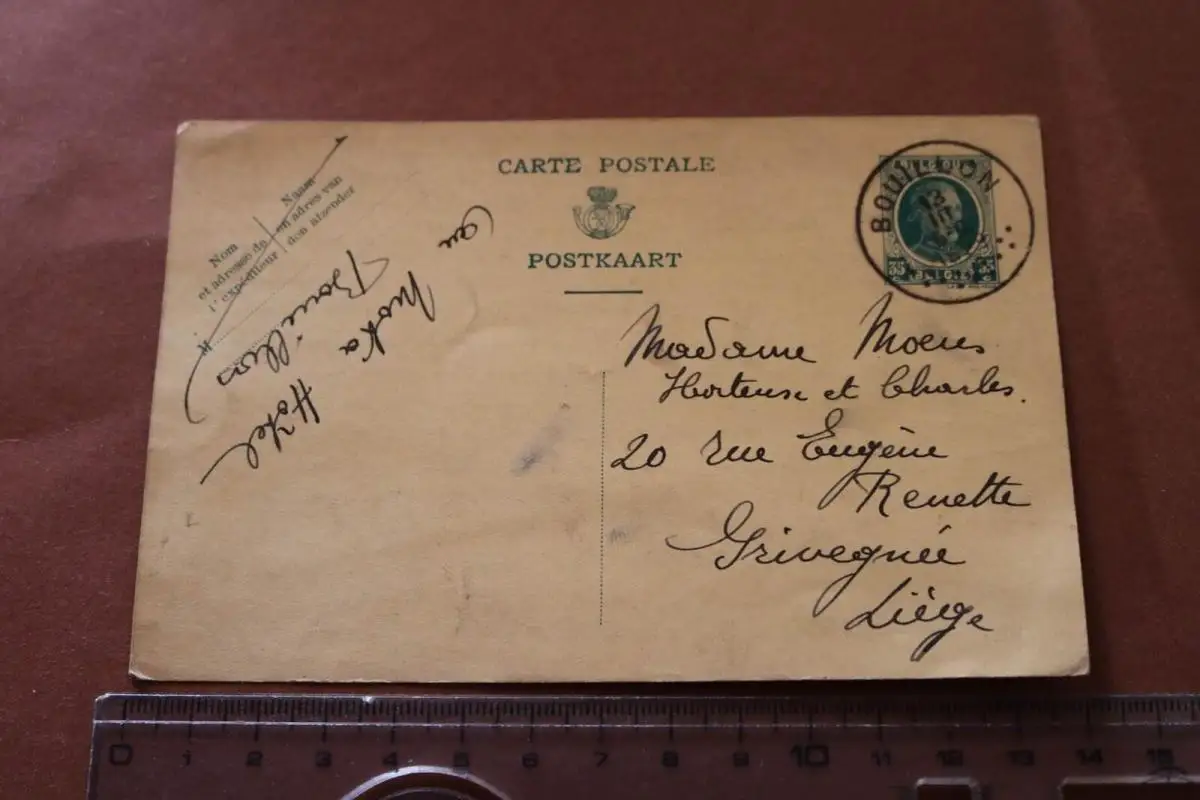 CARTE POSTALE
POSTKAART
Nom
et adresse de
l'expéditeur
Naam
en adres van
den afzender
Hôtel
au Moka
Bouillon
BOUILLON
BELGIQUE
35 BELGIË 35
Madame Moens
Hortense et Charles.
20 rue Eugène
Renette
Grivegnée
Liège
0 1 2 3 4 5 6 7 8 9 10 11 12 13 14 15